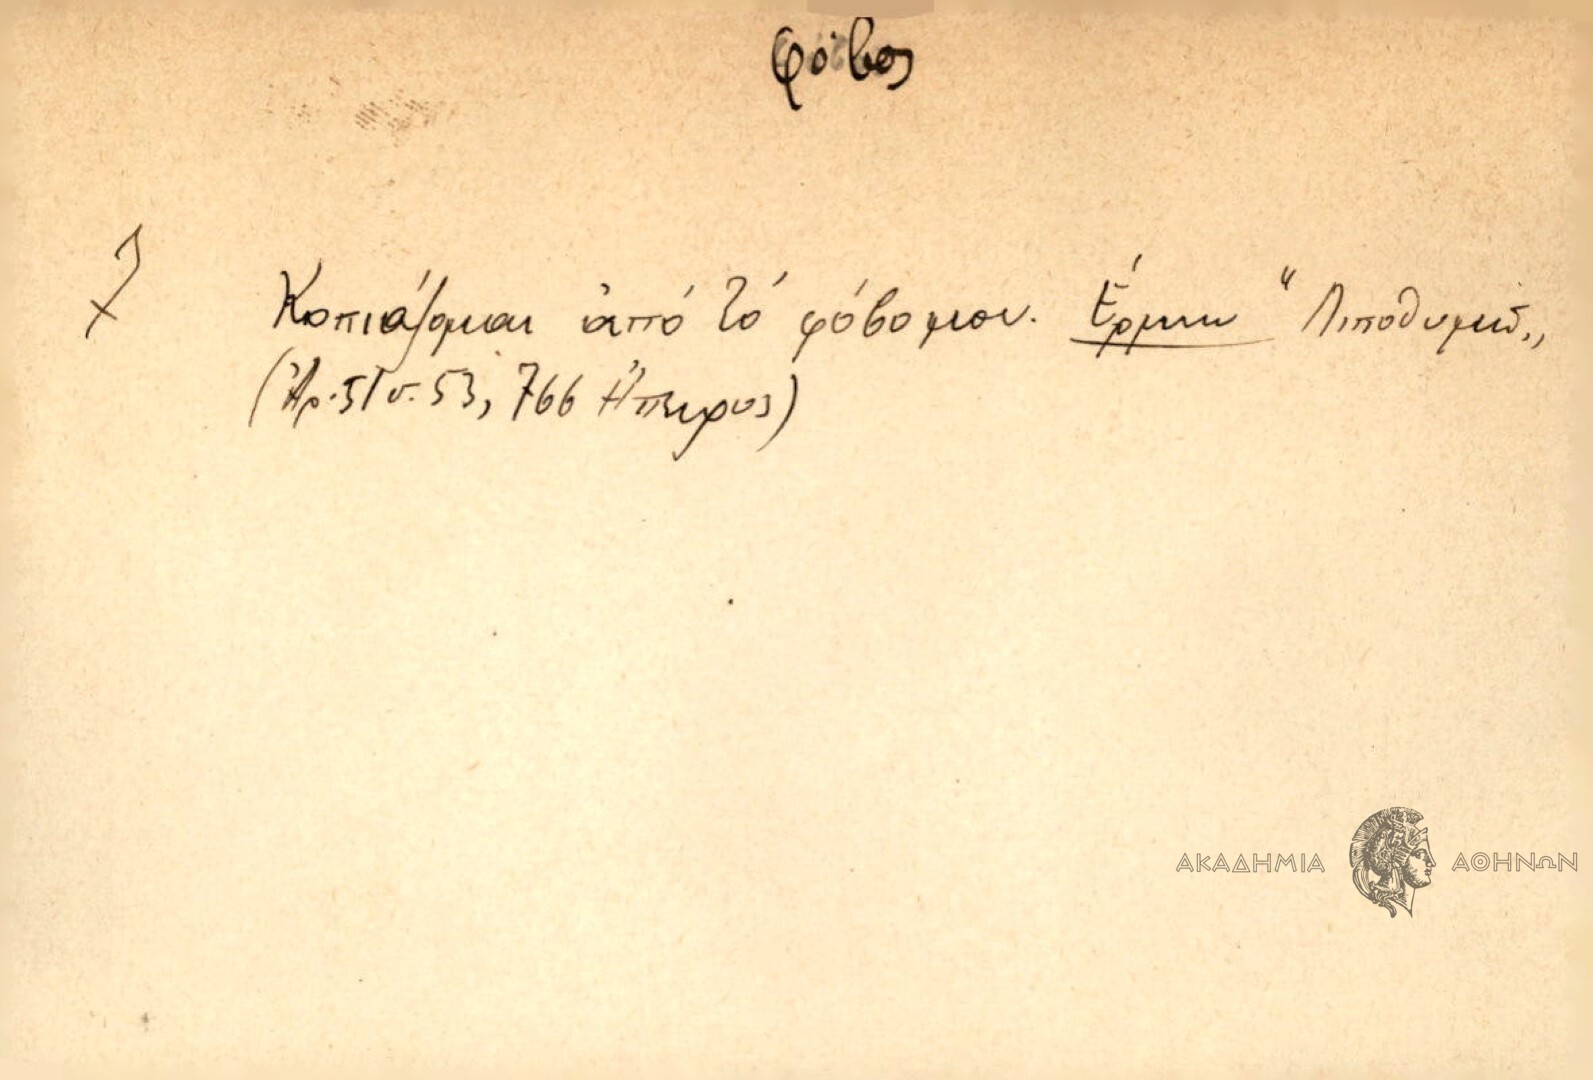 φόβος
Κοπιάζομαι ἀπό τό φόβομου. Ἑρμην "Λιποθυμῶ,,
(Ἀρ. 51 σ. 53, 766 Ἤπειρος)
ΑΚΑΔΗΜΙΑ ΑΘΗΝΩΝ